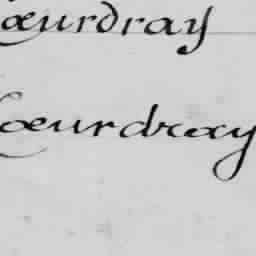 Cœurdray
Cœurdray